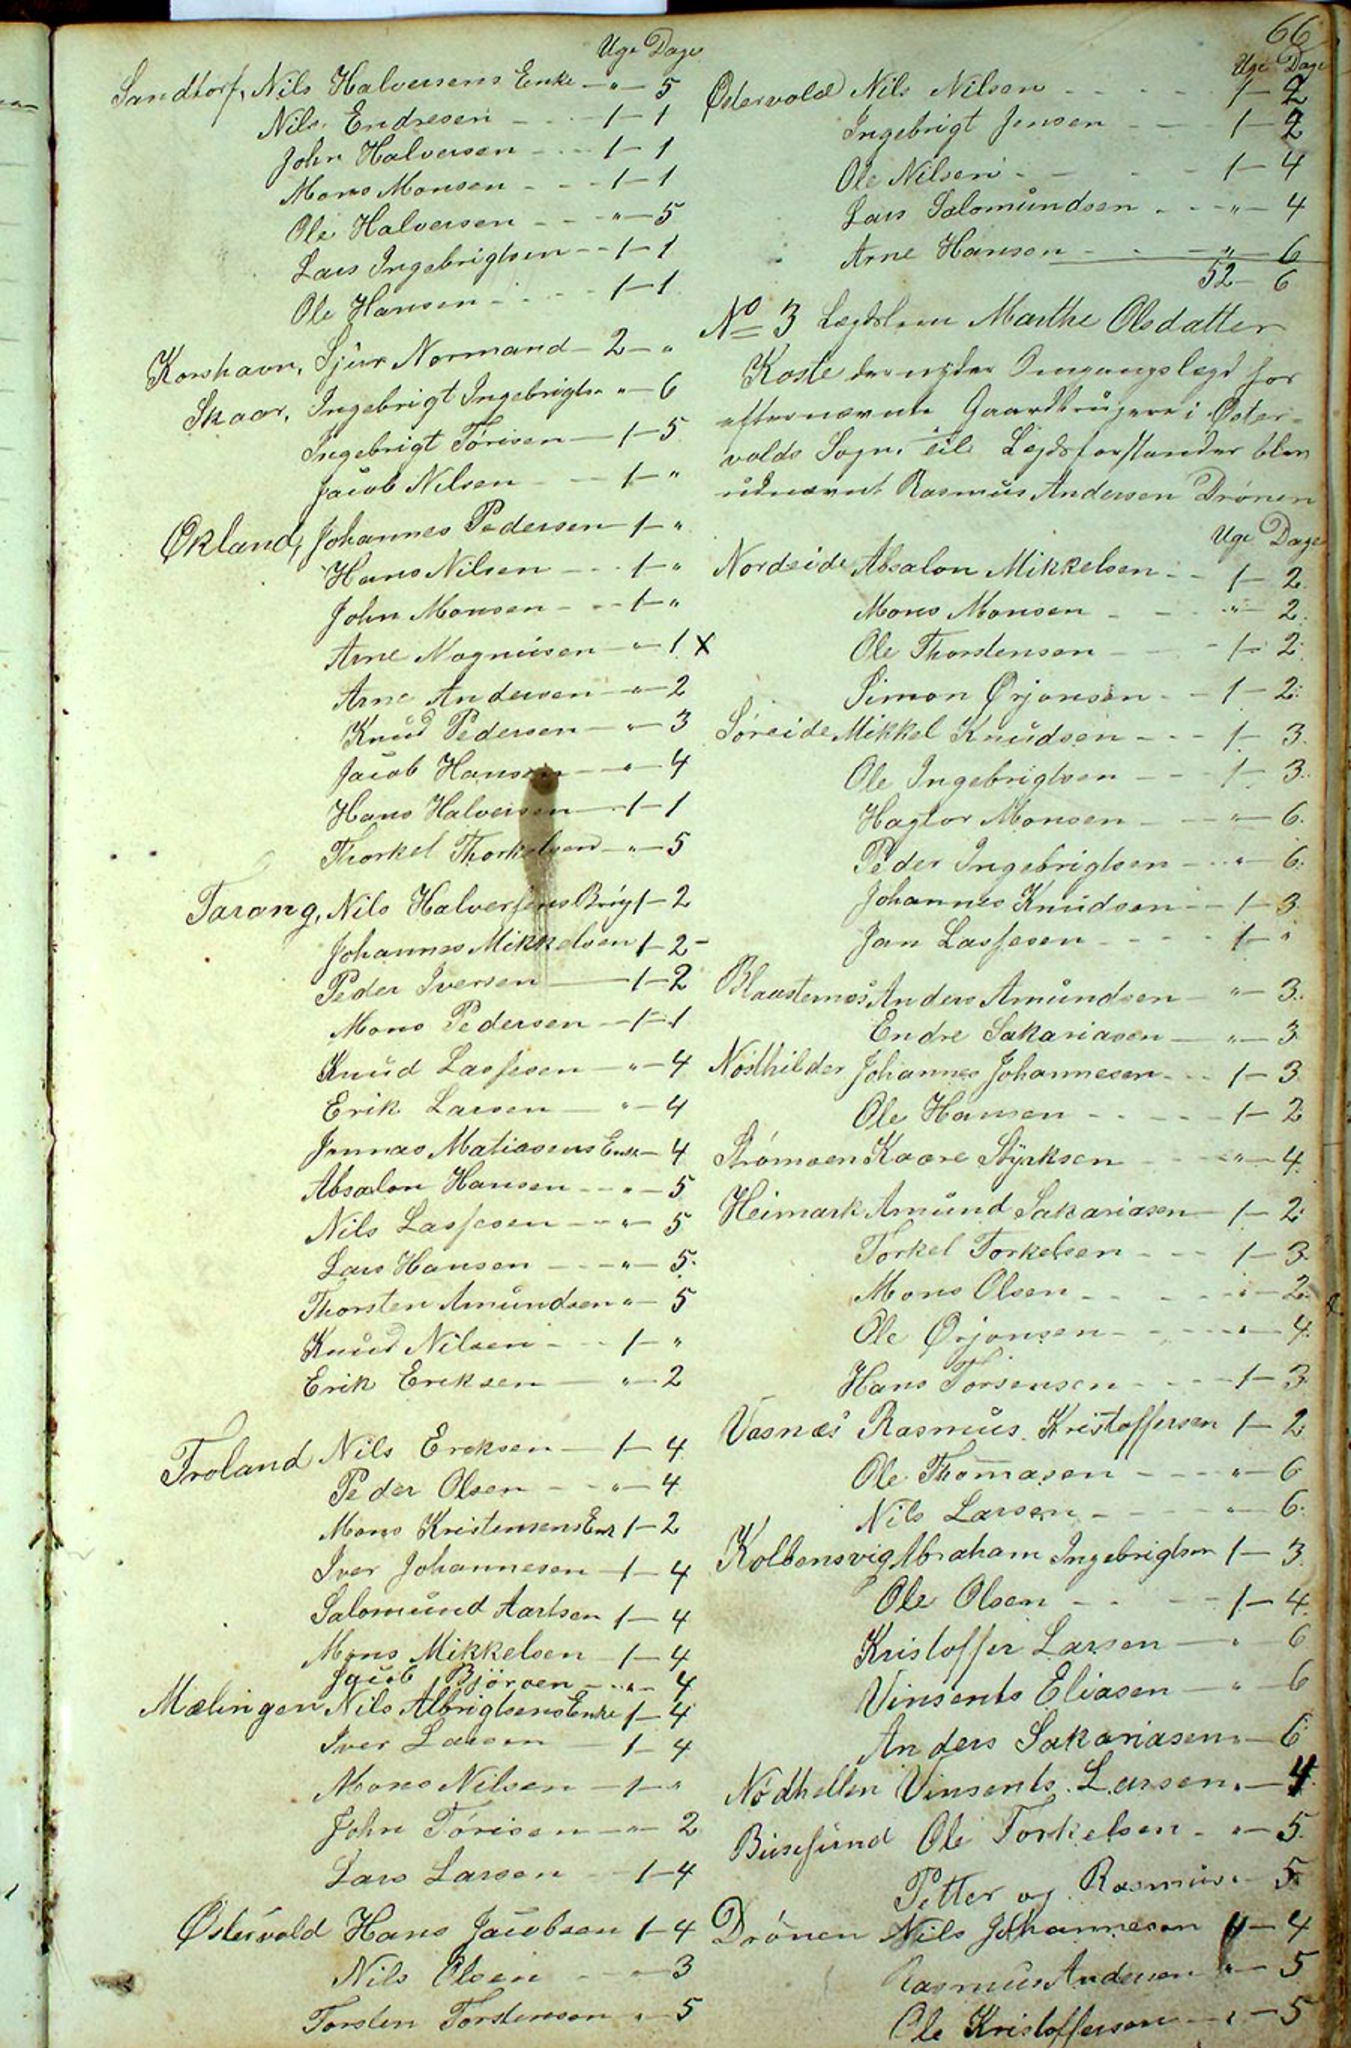 66
Uge Dage
Sandtorf, Nils Halversens Enke — " — 5
Nils Endresen - - - 1 — 1
John Halversen - - - 1 — 1
Mons Monsen - - - 1 — 1
Ole Halversen - - - " — 5
Lars Ingebrigtsen - - 1 — 1
Ole Hansen - - - - 1 — 1
Korshavn, Sjur Normand — 2 — "
Skaar, Ingebrigt Ingebrigts. " — 6
Ingebrigt Törisen — 1 — 5
Jacob Nilsen - - - 1 — "
Økland, Johannes Pedersen — 1 — "
Hans Nilsen - - - 1 — "
John Monsen - - - 1 — "
Arne Magnusen — " — 1 x
Arne Andersen — " — 2
Knud Pedersen — " — 3
Jacob Hansen — " — 4
Hans Halversen — 1 — 1
Thorkel Thorkelsen — " — 5
Tarang, Nils Halversens Brüg 1 — 2
Johannes Mikkelsen 1 — 2 -
Peder Iversen — 1 — 2
Mons Pedersen — 1 — 1
Knud Lassesen — " — 4
Erik Larsen — " — 4
Jonnas Matiasens Enk — 4
Absalon Hansen - - " — 5
Nils Lassesen - - " — 5
Lars Hansen - - - " — 5
Thorsten Amundsen " — 5
Knud Nilsen - - - 1 — "
Erik Eriksen — " — 2
Troland Nils Ereksen — 1 — 4
Peder Olsen - - " — 4
Mons Kristensens Enk 1 — 2
Iver Johannesen — 1 — 4
Salomund Aartsen 1 — 4
Mons Mikkelsen — 1 — 4
Jacob Björsen - - " — 4
Mælingen Nils Albrigtsens Enke 1 — 4
Iver Larsen — 1 — 4
Mons Nilsen — 1 — "
John Törisen — " — 2
Lars Larsen — 1 — 4
Østervold Hans Jacobsen 1 — 4
Nils Olsen - - " — 3
Torsten Torstensen " — 5
Uge Dage
Østervold Nils Nilsen - - - - 1 — 2
Ingebrigt Jensen - - - 1 — 2
Ole Nilsen - - - - 1 — 4
Lars Salomundsen - - - " — 4
Arne Hansen - - - - " — 6
52 — 6
No 3 Lægdslem Marthe Olsdatter
Koste der nyder Omgangslægd hos
efternævnte Gaardbrugere i Øster-
volds Sogn, til Legdsforstander blev
udnævnt Rasmus Andersen Drönen
Uge Dage
Nordeide Absalon Mikkelsen - - 1 — 2
Mons Monsen - - - " — 2
Ole Thorstensen - - - 1 — 2
Simon Ørjansen - - 1 — 2
Søreide Mikkel Knudsen - - - 1 — 3
Ole Ingebrigtsen - - - 1 — 3
Hagtor Monsen - - - " — 6
Peder Ingebrigtsen - - - " — 6
Johannes Knudsen - - 1 — 3
Jan Lassesen - - - - 1 — "
Blausternes Anders Amundsen — " — 3
Endre Sakariasen — " — 3
Nösthilder Johannes Johannesen - - - 1 — 3
Ole Hansen - - - - 1 — 2
Strömsen Kaare Styrksen - - - " — 4
Heimark Amund Sakariasen — 1 — 2
Torkel Torkelsen - - - 1 — 3
Mons Olsen - - - - " — 2
Ole Ørjansen - - - - " — 4
Hans Torsensen - - - 1 — 3
Vasnæs Rasmus Kristoffersen 1 — 2
Ole Thomasen - - - " — 6
Nils Larsen - - - - " — 6
Kolbensvig Abraham Ingebrigtsen 1 — 3
Ole Olsen - - - 1 — 4
Kristoffer Larsen — " — 6
Vinsents Eliasen — " — 6
Anders Sakariasen " — 6
Nödhellen Vinsents Larsen " — 4
Buesund Ole Torkelsen - " — 5
Petter og Rasmus " 5
Drönen Nils Johannesen " — 4
Rasmus Andersen " — 5
Ole Kristoffersen — " — 5